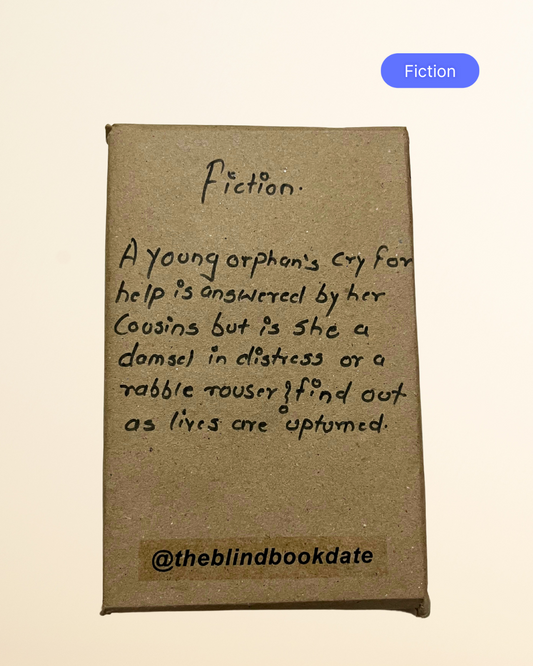 Fiction
Fiction.
A young orphan's cry for
help is answered by her
Cousins but is she a
damsel in distress or a
rabble rouser? find out
as lives are upturned.
@theblindbookdate